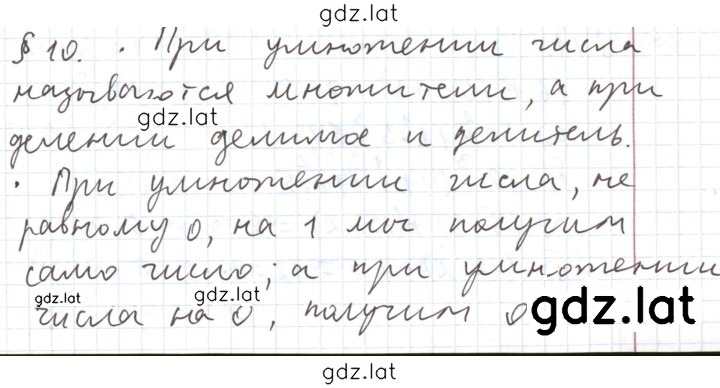 gdz.lat
§ 10. • При умножении числа
называются множители, а при
gdz.lat
делении делимое и делитель.
• При умножении числа, не
равному 0, на 1 мы получим
само число; а при умножении
gdz.lat gdz.lat
числа на 0, получим 0
gdz.lat
gdz.lat